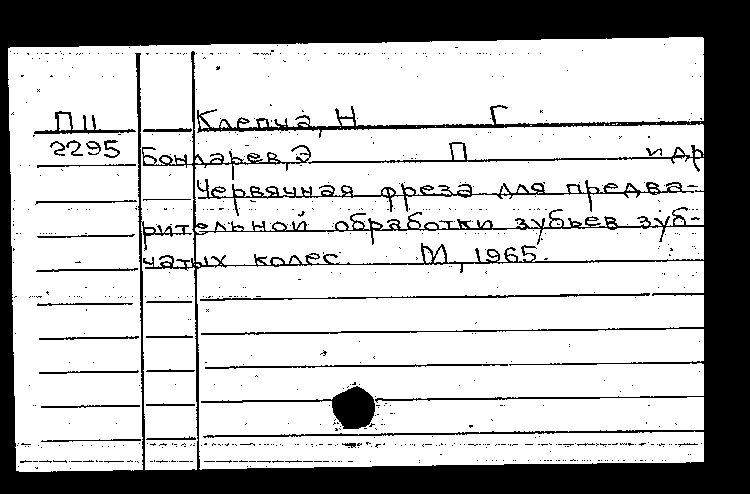 П11 Клепча, Н Г
2295 Бондарев, Э П и др
Червячная фреза для предва-
рительной обработки зубьев зуб-
чатых колес. М, 1965.